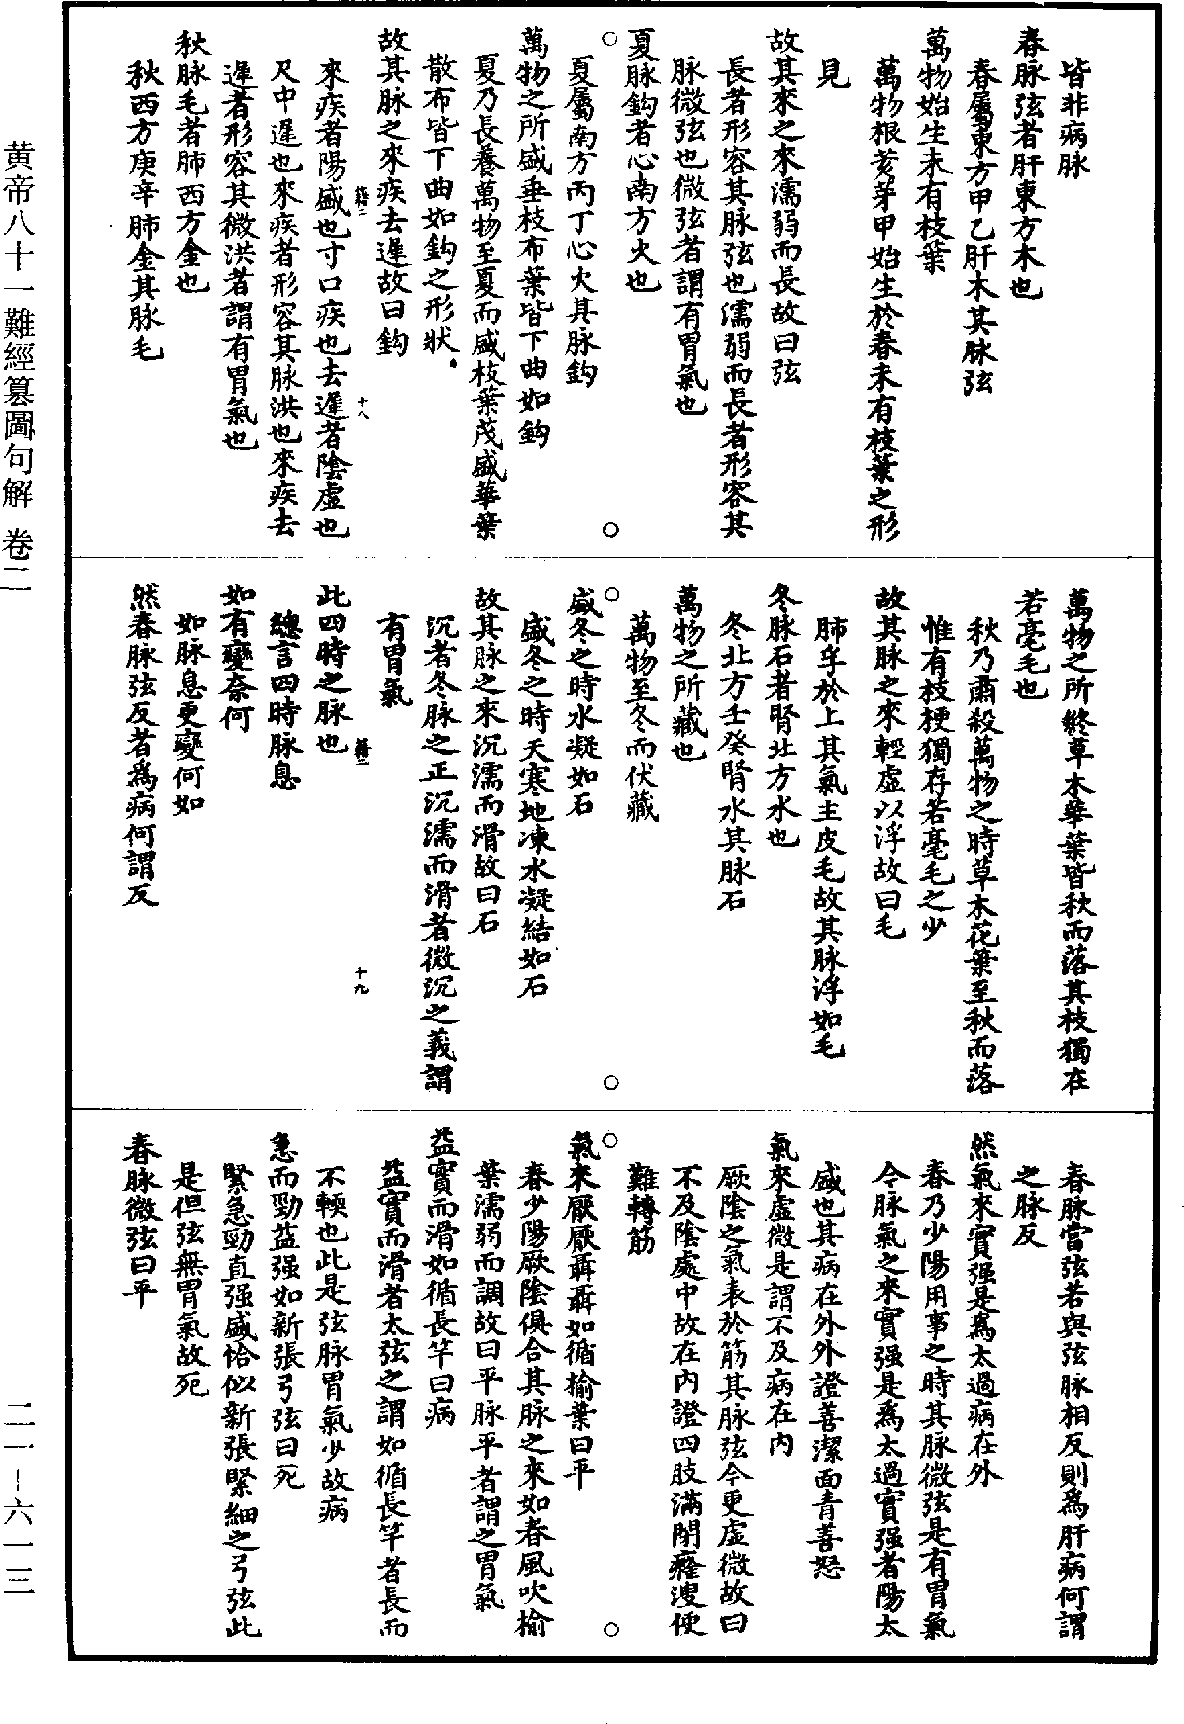 皆非病脉
春脉弦者肝東方木也
春屬東方甲乙肝木其脉弦
萬物始生未有枝葉
萬物根荄芽甲始生於春未有枝葉之形
見
故其來之來濡弱而長故曰弦
長者形容其脉弦也濡弱而長者形容其
脉微弦也微弦者謂有胃氣也
夏脉鈎者心南方火也
夏屬南方丙丁心火其脉鈎
萬物之所盛垂枝布葉皆下曲如鈎
夏乃長養萬物至夏而盛枝葉茂盛華葉
散布皆下曲如鈎之形狀
故其脉之來疾去遲故曰鈎
十八
來疾者陽盛也寸口疾也去遲者陰虛也
尺中遲也來疾者形容其脉洪也來疾去
遲者形容其微洪者謂有胃氣也
秋脉毛者肺西方金也
秋西方庚辛肺金其脉毛
萬物之所終草木華葉皆秋而落其枝獨在
若毫毛也
秋乃肅殺萬物之時草木花葉至秋而落
惟有枝梗獨存若毫毛之少
故其脉之來輕虛以浮故曰毛
肺孚於上其氣主皮毛故其脉浮如毛
冬脉石者腎北方水也
冬北方壬癸腎水其脉石
萬物之所藏也
萬物至冬而伏藏
盛冬之時水凝如石
盛冬之時天寒地凍水凝結如石
故其脉之來沉濡而滑故曰石
沉者冬脉之正沉濡而滑者微沉之義謂
有胃氣
十九
此四時之脉也
總言四時脉息
如有變奈何
如脉息更變何如
然春脉弦反者爲病何謂反
春脉當弦若與弦脉相反則爲肝病何謂
之脉反
然氣來實强是爲太過病在外
春乃少陽用事之時其脉微弦是有胃氣
令脉氣之來實强是爲太過實强者陽太
盛也其病在外外證善潔面青善怒
氣來虛微是謂不及病在內
厥陰之氣表於筋其脉弦今更虛微故曰
不及陰處中故在內證四肢滿閉癃溲便
難轉筋
氣來厭厭聶聶如循榆葉曰平
春少陽厥陰俱合其脉之來如春風吹榆
葉濡弱而調故曰平脉平者謂之胃氣
益實而滑如循長竿曰病
益實而滑者太弦之謂如循長竿者長而
不輭也此是弦脉胃氣少故病
急而勁益强如新張弓弦曰死
緊急勁直强盛恰似新張緊細之弓弦此
是但弦無胃氣故死
春脉微弦曰平
黄帝八十一難經篹圖句解 卷二
二一—六一三